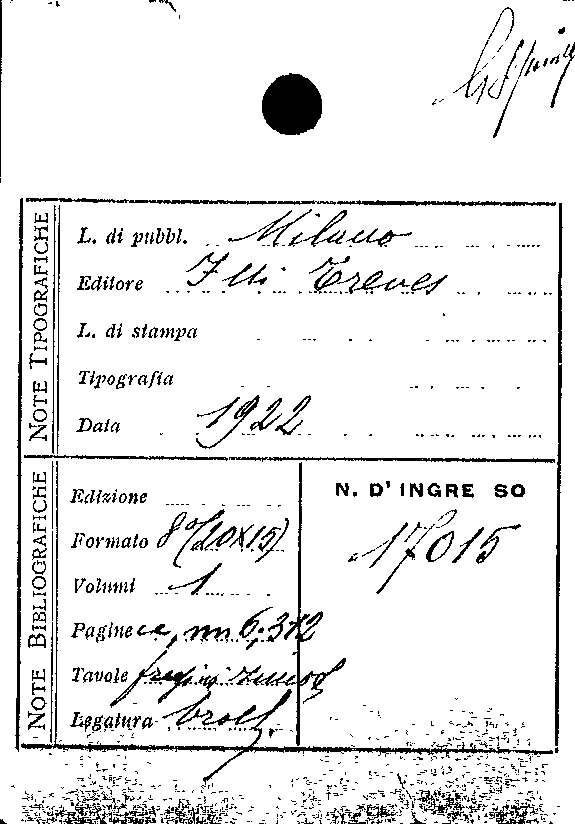 NOTE TIPOGRAFICHE
L. di pubbl. Milano
Editore F lli Treves
L. di stampa
Tipografia
Data 1922
NOTE BIBLIOGRAFICHE
Edizione
Formato 8° (10x15)
Volumi 1
Pagine cc, nn 6; 312
Tavole
Legatura
N. D' INGRE SO
17015